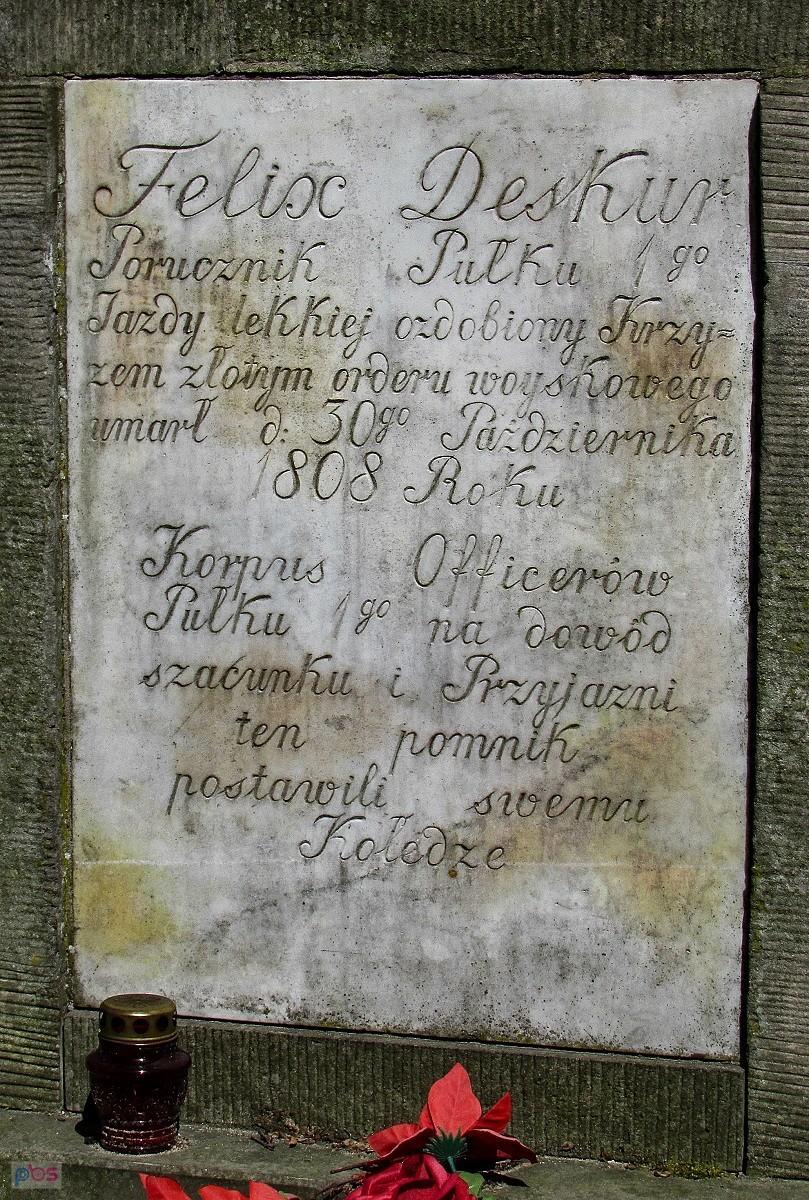 Felix Deskur
Porucznik Pułku 1go
Jazdy lekkiej ozdobiony Krzy=
zem złotym orderu woyskowego
umarł d: 30go Października
1808 Roku
Korpus Officerów
Pułku 1go na dowód
szacunku i Przyjazni
ten pomnik
postawili swemu
Koledze
pbs